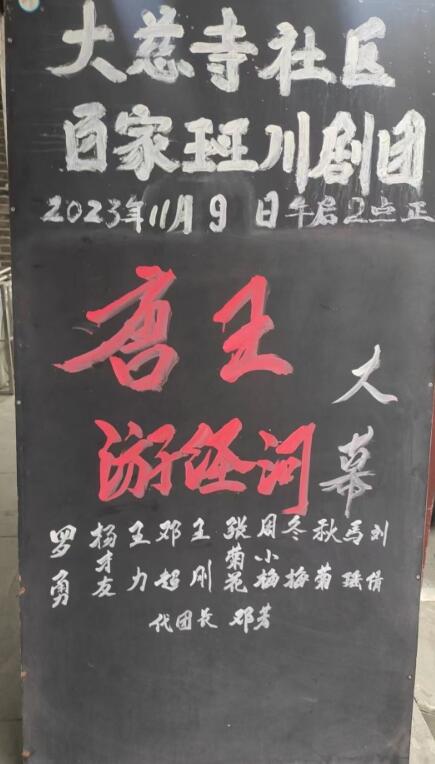 大慈寺社区
百家班川剧团
2023年11月9日午后2点正
唐王
游经河
大幕
罗勇
杨才友
王力
邓超
王刚
张菊花
周小梅
冬梅
秋菊
马瑶
刘倩
代团长 邓芳